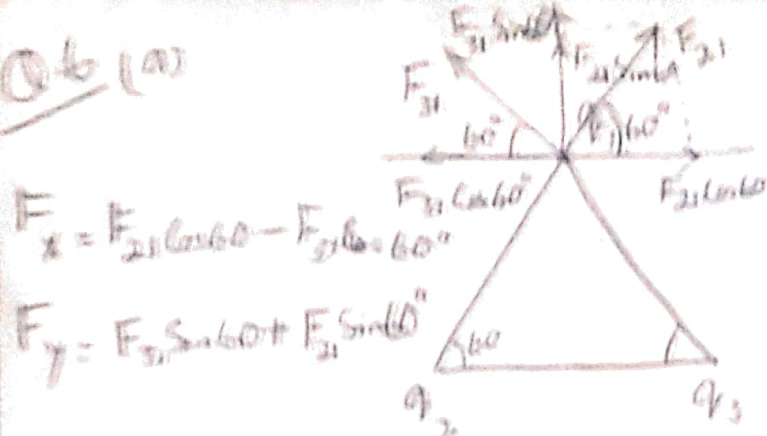 Q6 (a)
F31 Sin60°
F21 Sin60
F21
F31
60°
q1
60°
F31 Cos60°
F21 Cos60
Fx = F21 Cos60 - F31 Cos 60°
Fy = F31 Sin60 + F21 Sin60°
60
q2
q3